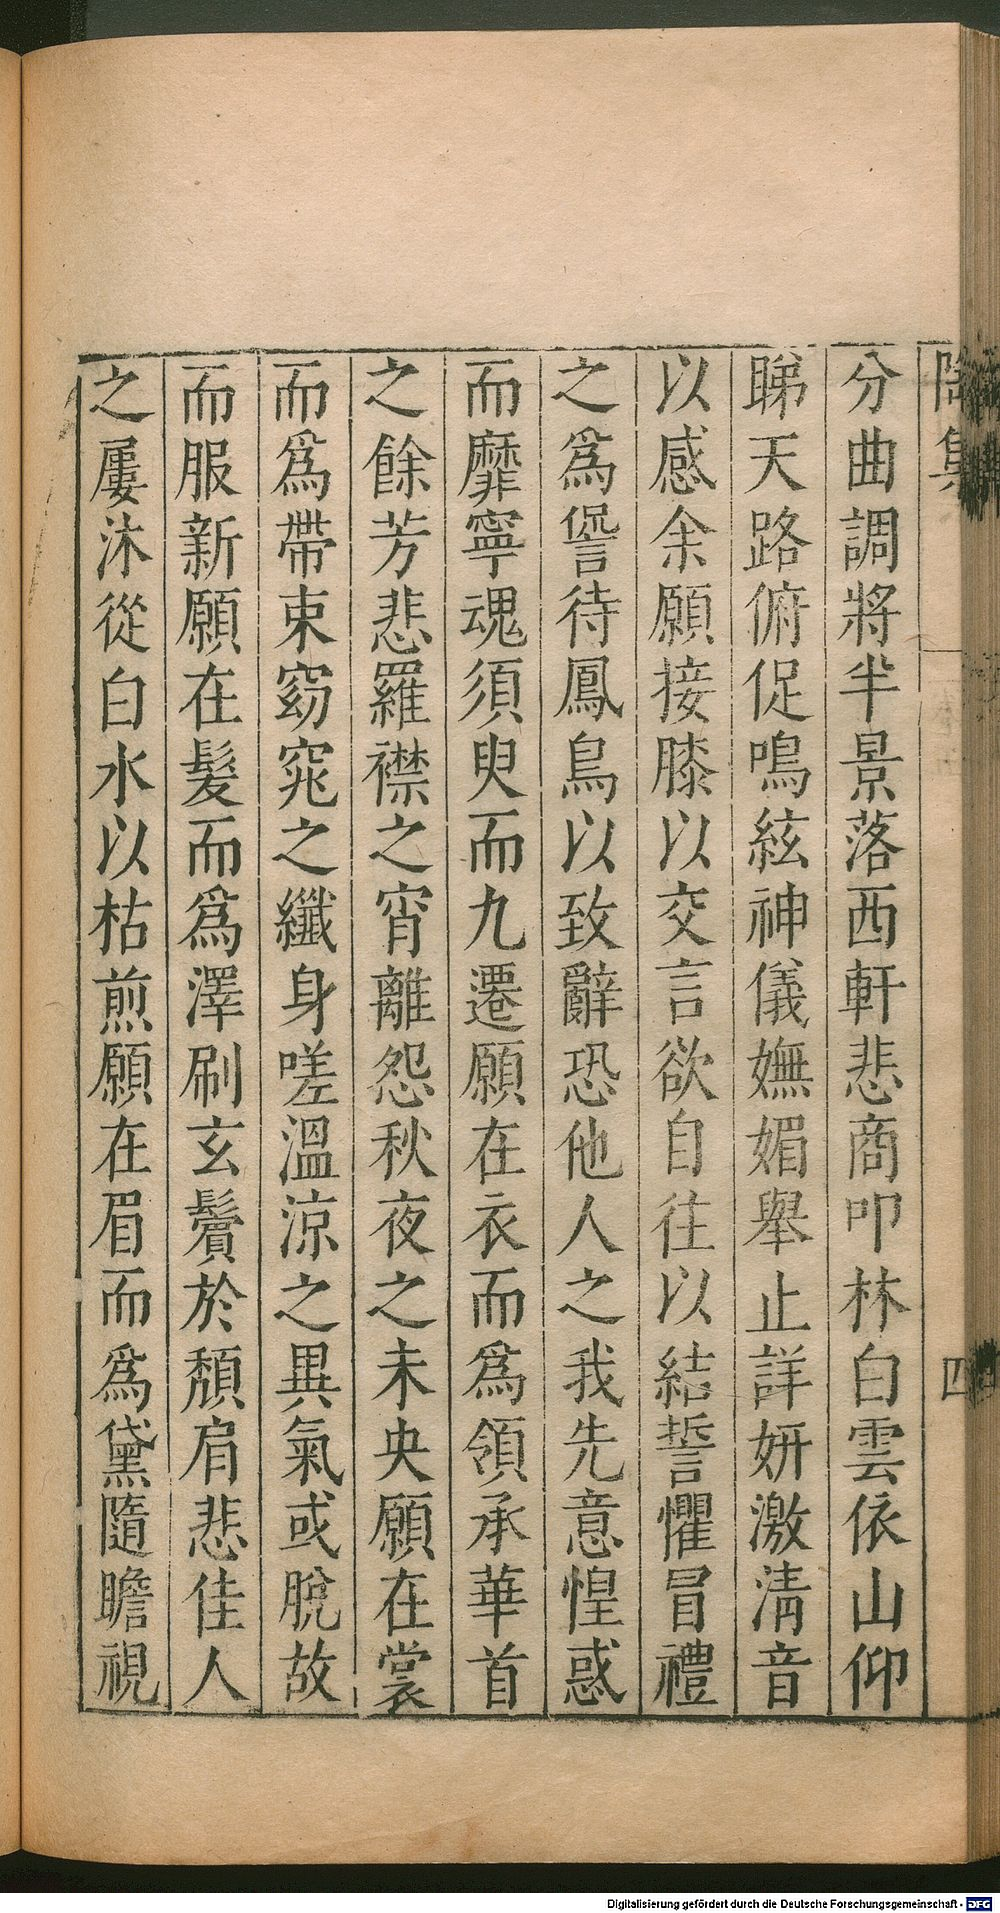 陶集
四
分曲調將半景落西軒悲商叩林白雲依山仰
睇天路俯促鳴絃神儀嫵媚舉止詳妍激淸音
以感余願接膝以交言欲自往以結誓懼冒禮
之爲諐待鳳鳥以致辭恐他人之我先意惶惑
而靡寧魂須臾而九遷願在衣而爲領承華首
之餘芳悲羅襟之宵離怨秋夜之未央願在裳
而爲帶束窈窕之纖身嗟溫涼之異氣或脫故
而服新願在髮而爲澤刷玄鬢於頹肩悲佳人
之屢沐從白水以枯煎願在眉而爲黛隨瞻視
Digitalisierung gefördert durch die Deutsche Forschungsgemeinschaft - DFG